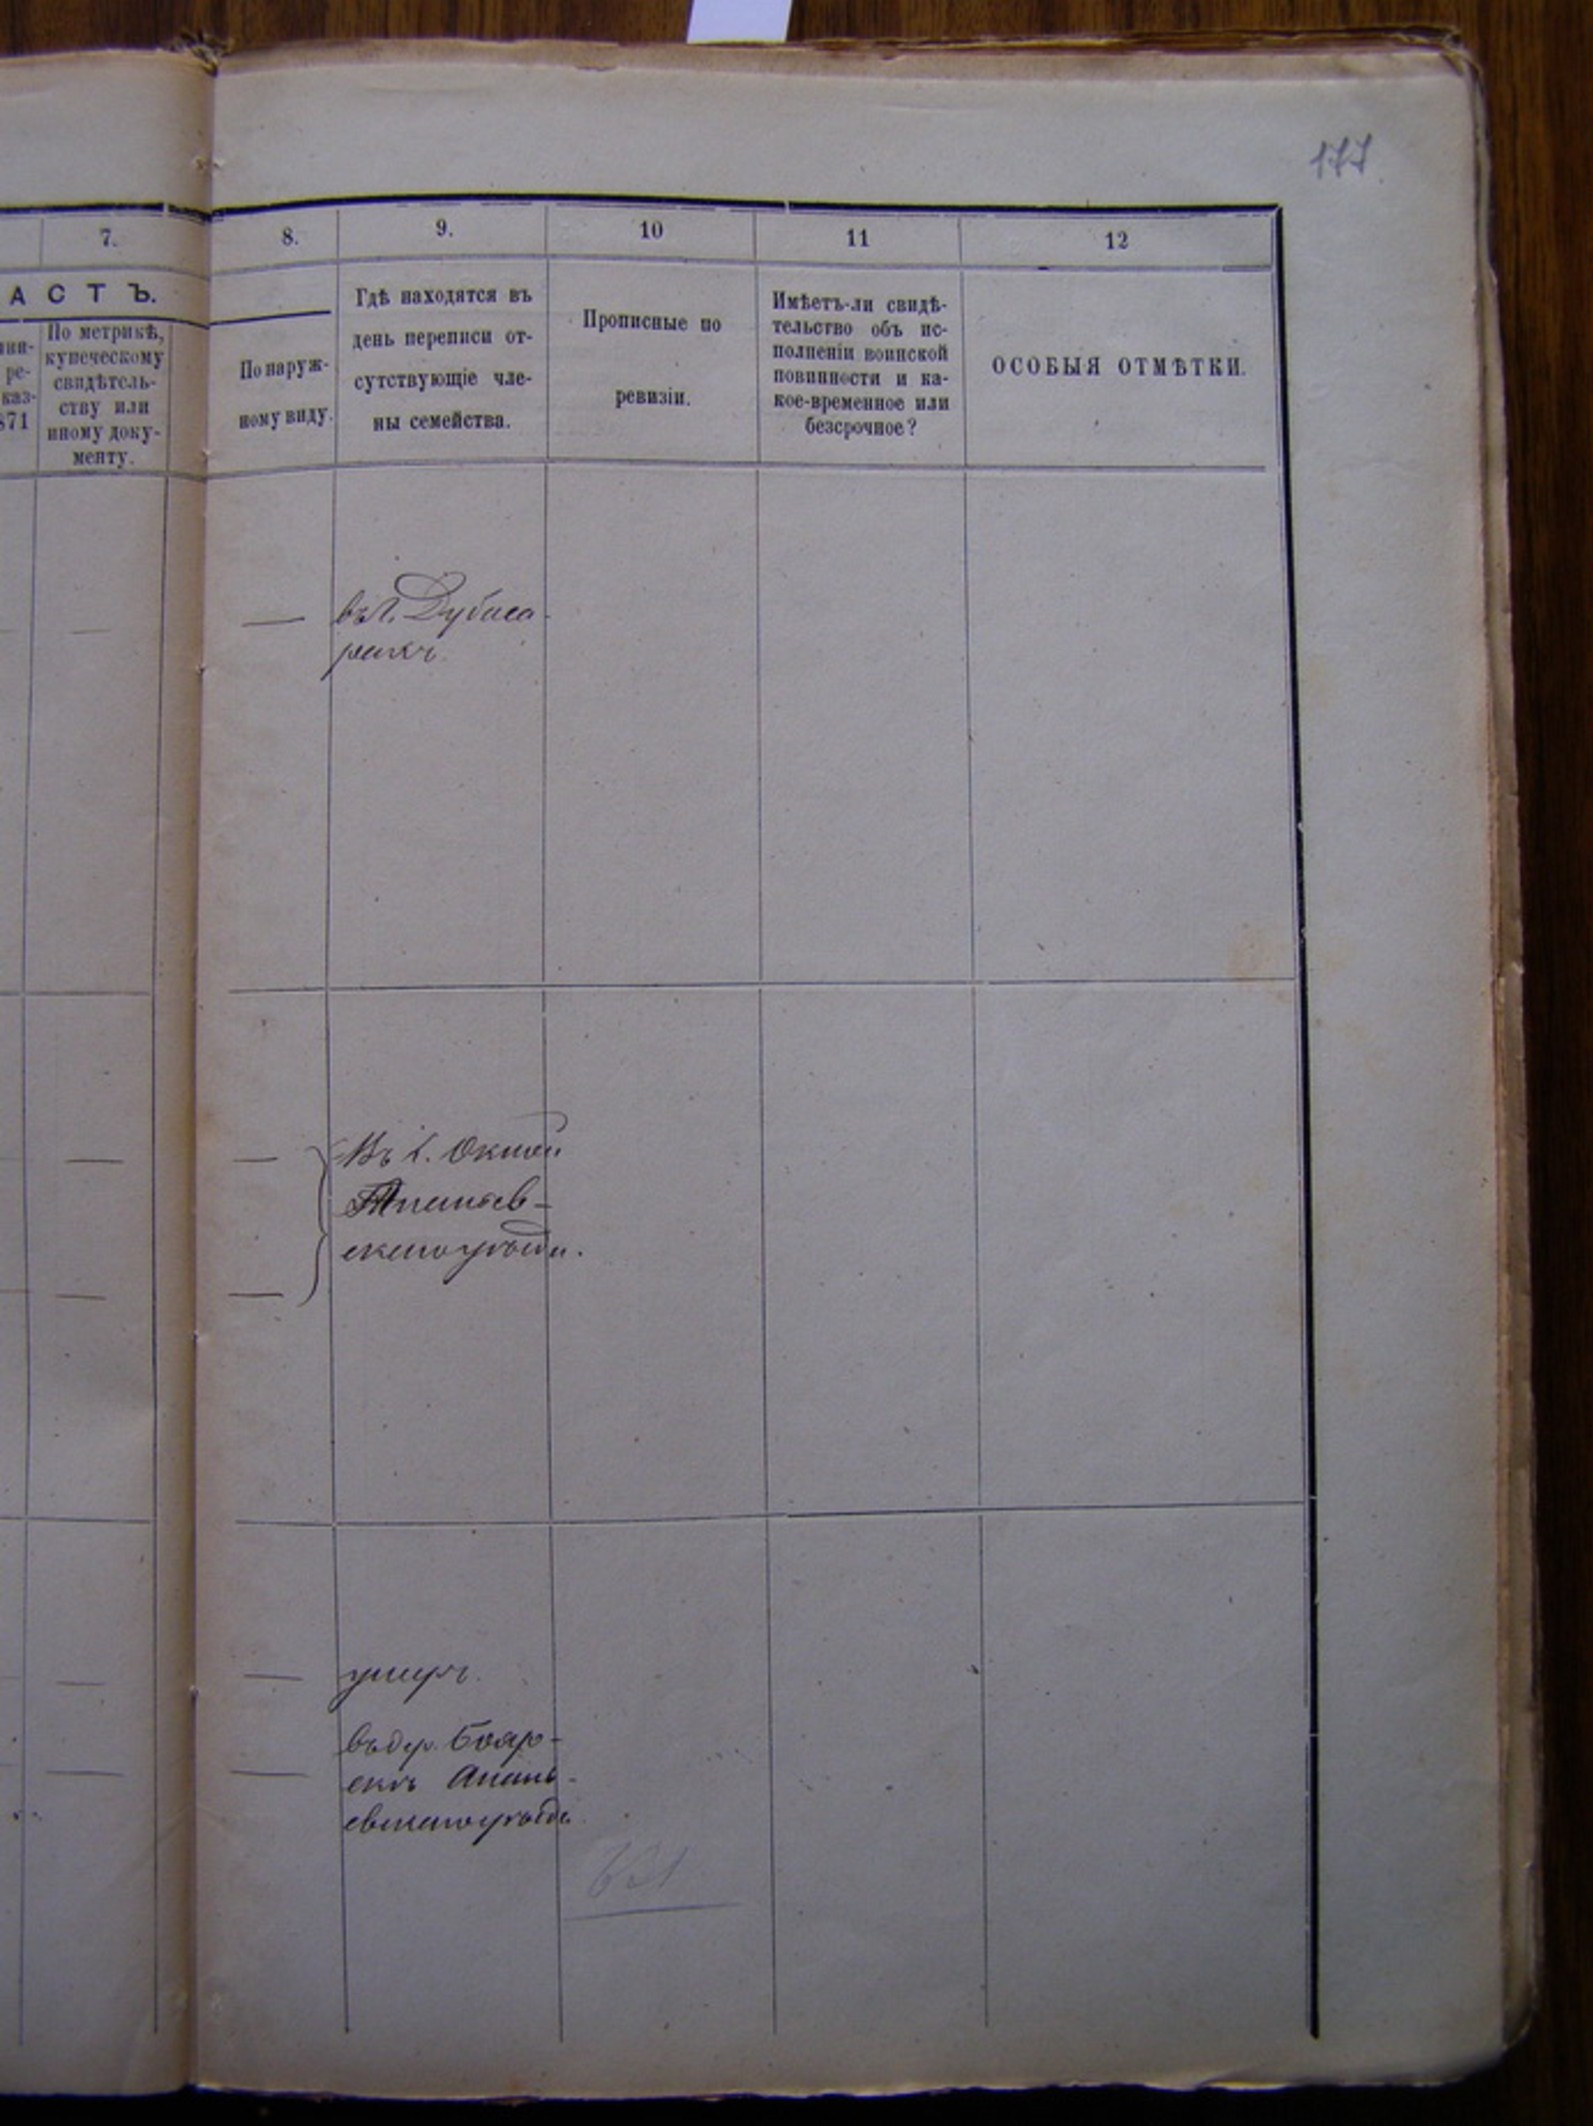 177
7.
8.
9.
10
11
12
АСТЪ.
ре-
каз-
871
По метрикѣ,
купеческому
свидѣтель-
ству или
иному доку-
менту.
По наруж-
ному виду.
Гдѣ находятся въ
день переписи от-
сутствующіе чле-
ны семейства.
Прописные по
ревизіи.
Имѣетъ-ли свидѣ-
тельство объ ис-
полненіи воинской
повинности и ка-
кое-временное или
безсрочное?
ОСОБЫЯ ОТМѢТКИ.
въ Дубоса-
рахъ.
Въ Окнахъ
Ананьев-
скаго уѣзда.
умеръ.
въ дер. Бояр-
скѣ Анань-
евскаго уѣзда
621